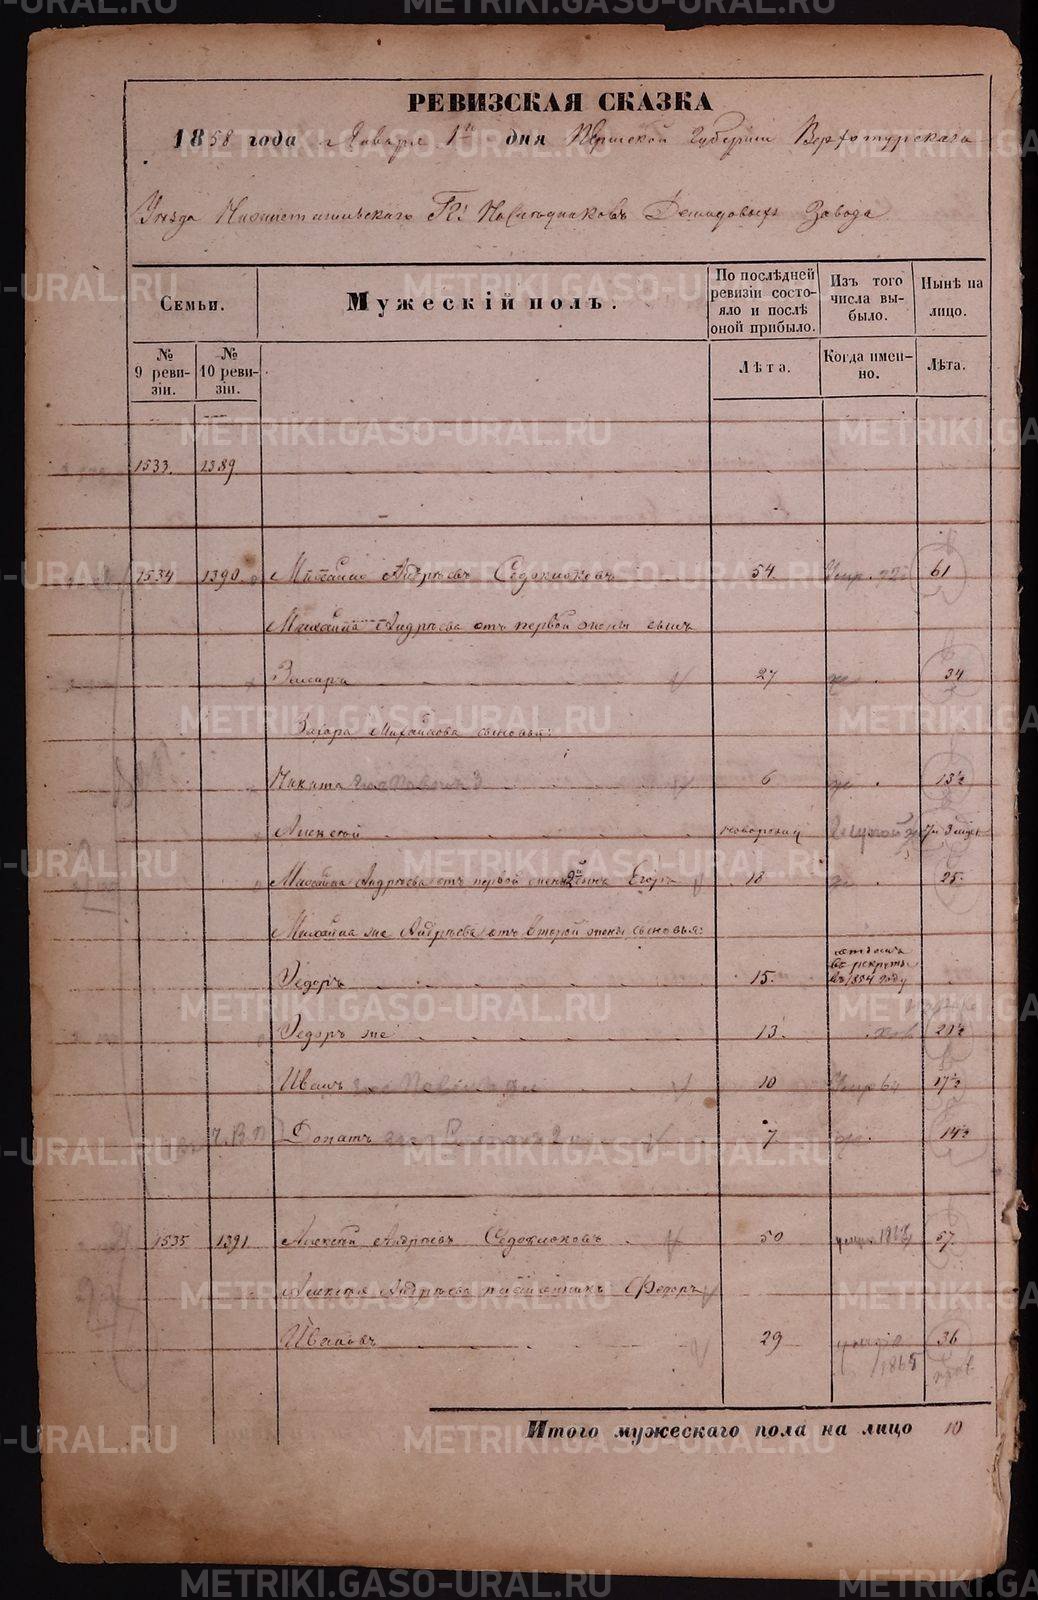 РЕВИЗСКАЯ СКАЗКА
1858 года Января 1го дня Пермской Губерніи Верхотурскаго
Уезда Нижнетагильскаго Гг. Наследниковъ Демидовыхъ Завода
Семьи.
Мужескій полъ.
По послѣдней ревизіи состояло и послѣ оной прибыло.
Изъ того числа выбыло.
Нынѣ на лицо.
№ 9 ревизіи.
№ 10 ревизіи.
Лѣта.
Когда именно.
Лѣта.
1533. 1389
1534 1390 Михайло Андрѣевъ Седокмоковъ 54. Умр. 61
Михайла Андрѣева отъ первой жены сынъ
Захаръ 27 34
Захара Михайлова сыновья:
Никита 6 13½
Алексѣй новорожд 7 и 3 мѣс
Михайла Андрѣева отъ первой жены 2й сынъ Егоръ 18 25.
Михайла же Андрѣева отъ второй жены сыновья:
Ѳедоръ 15. въ рекруты въ 1854 году
Ѳедоръ же 13. 20½
Иванъ 10 Умр 64 17½
Донатъ 7 14½
1535 1391 Алексѣй Андрѣевъ Седокмоковъ 50 57
Алексѣя Андрѣева Ѳедоръ
Ивановъ 29 1865 36
Итого мужескаго пола на лицо 10
METRIKI.GASO-URAL.RU